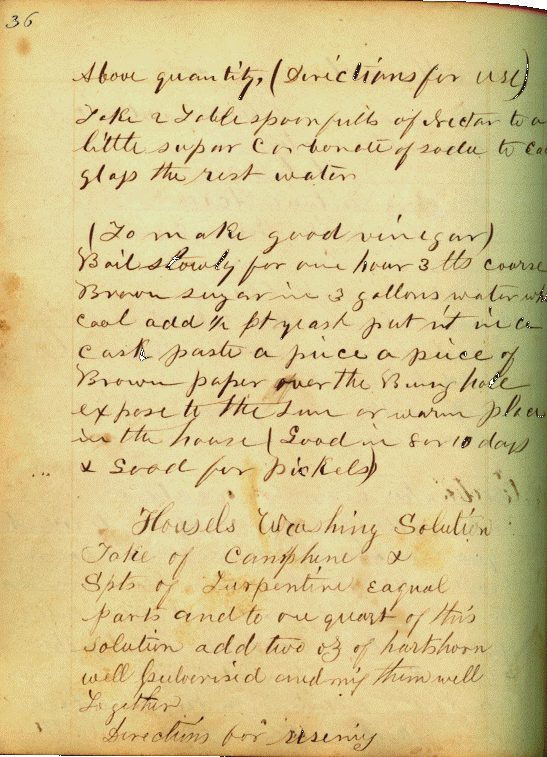 36
Above quantity, (Directions for use)
Take 2 Tablespoonfulls of Nectar to a
little supar Carbonate of soda to
glass the rest water
(To make good vinegar)
Boil slowly for one hour 3 lbs course
Brown sugar in 3 gallons water
cool add ½ pt yeast put it in a
cask paste a piece a piece of
Brown paper over the Bung hole
expose to the sun or warm place
in the house (Good in 8 or 10 days
& Good for pickels)
Housels Washing Solution
Take of Camphine &
Spts of Turpentine eaqual
parts and to one quart of this
solution add two oz of hartshorn
well pulverised and mix them well
Together
Directions for useing